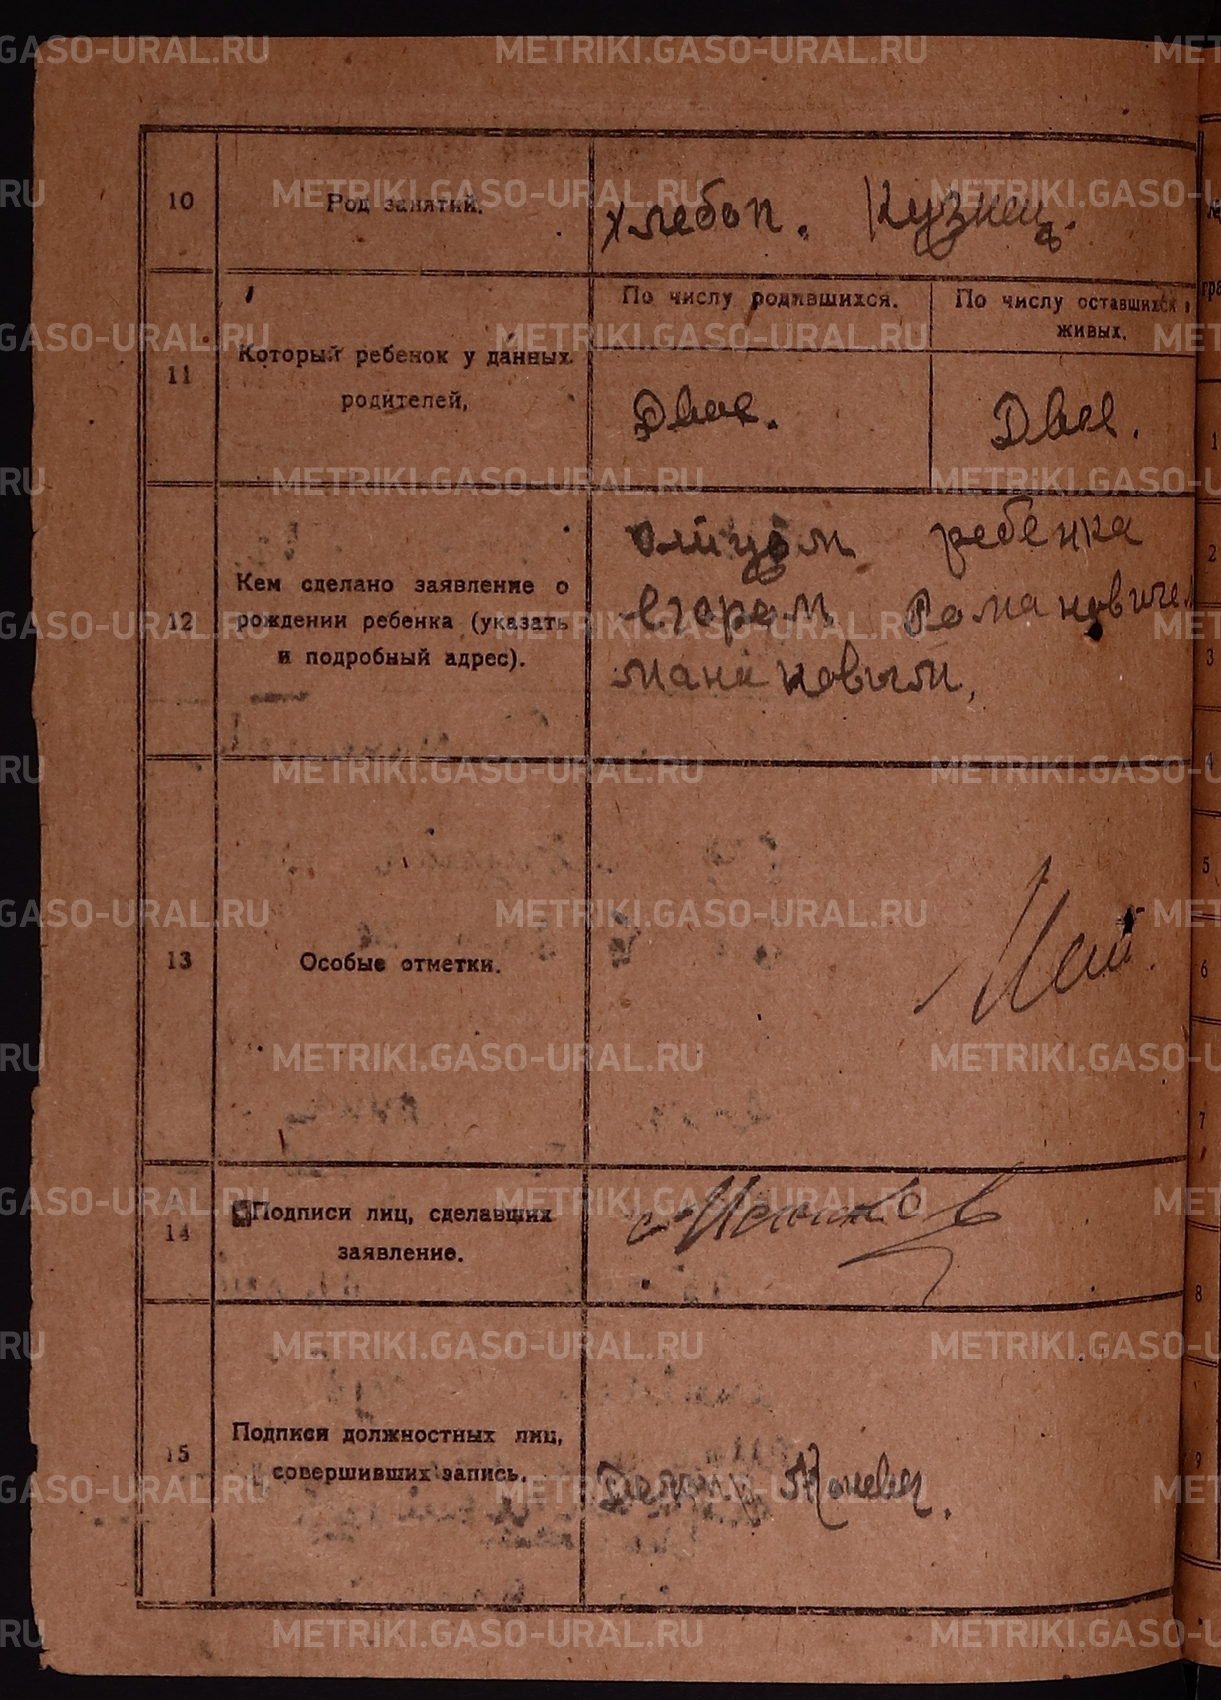 10
Род занятий.
хлебоп. Кузнец.
11
Который ребенок у данных
родителей,
По числу родившихся.
По числу оставшихся
живых.
Двое.
Двое.
12
Кем сделано заявление о
рождении ребенка (указать
и подробный адрес).
отцом ребенка
Егором Романовичем
13
Особые отметки.
14
Подписи лиц, сделавших
заявление.
15
Подписи должностных лиц,
совершивших запись.
METRIKI.GASO-URAL.RU